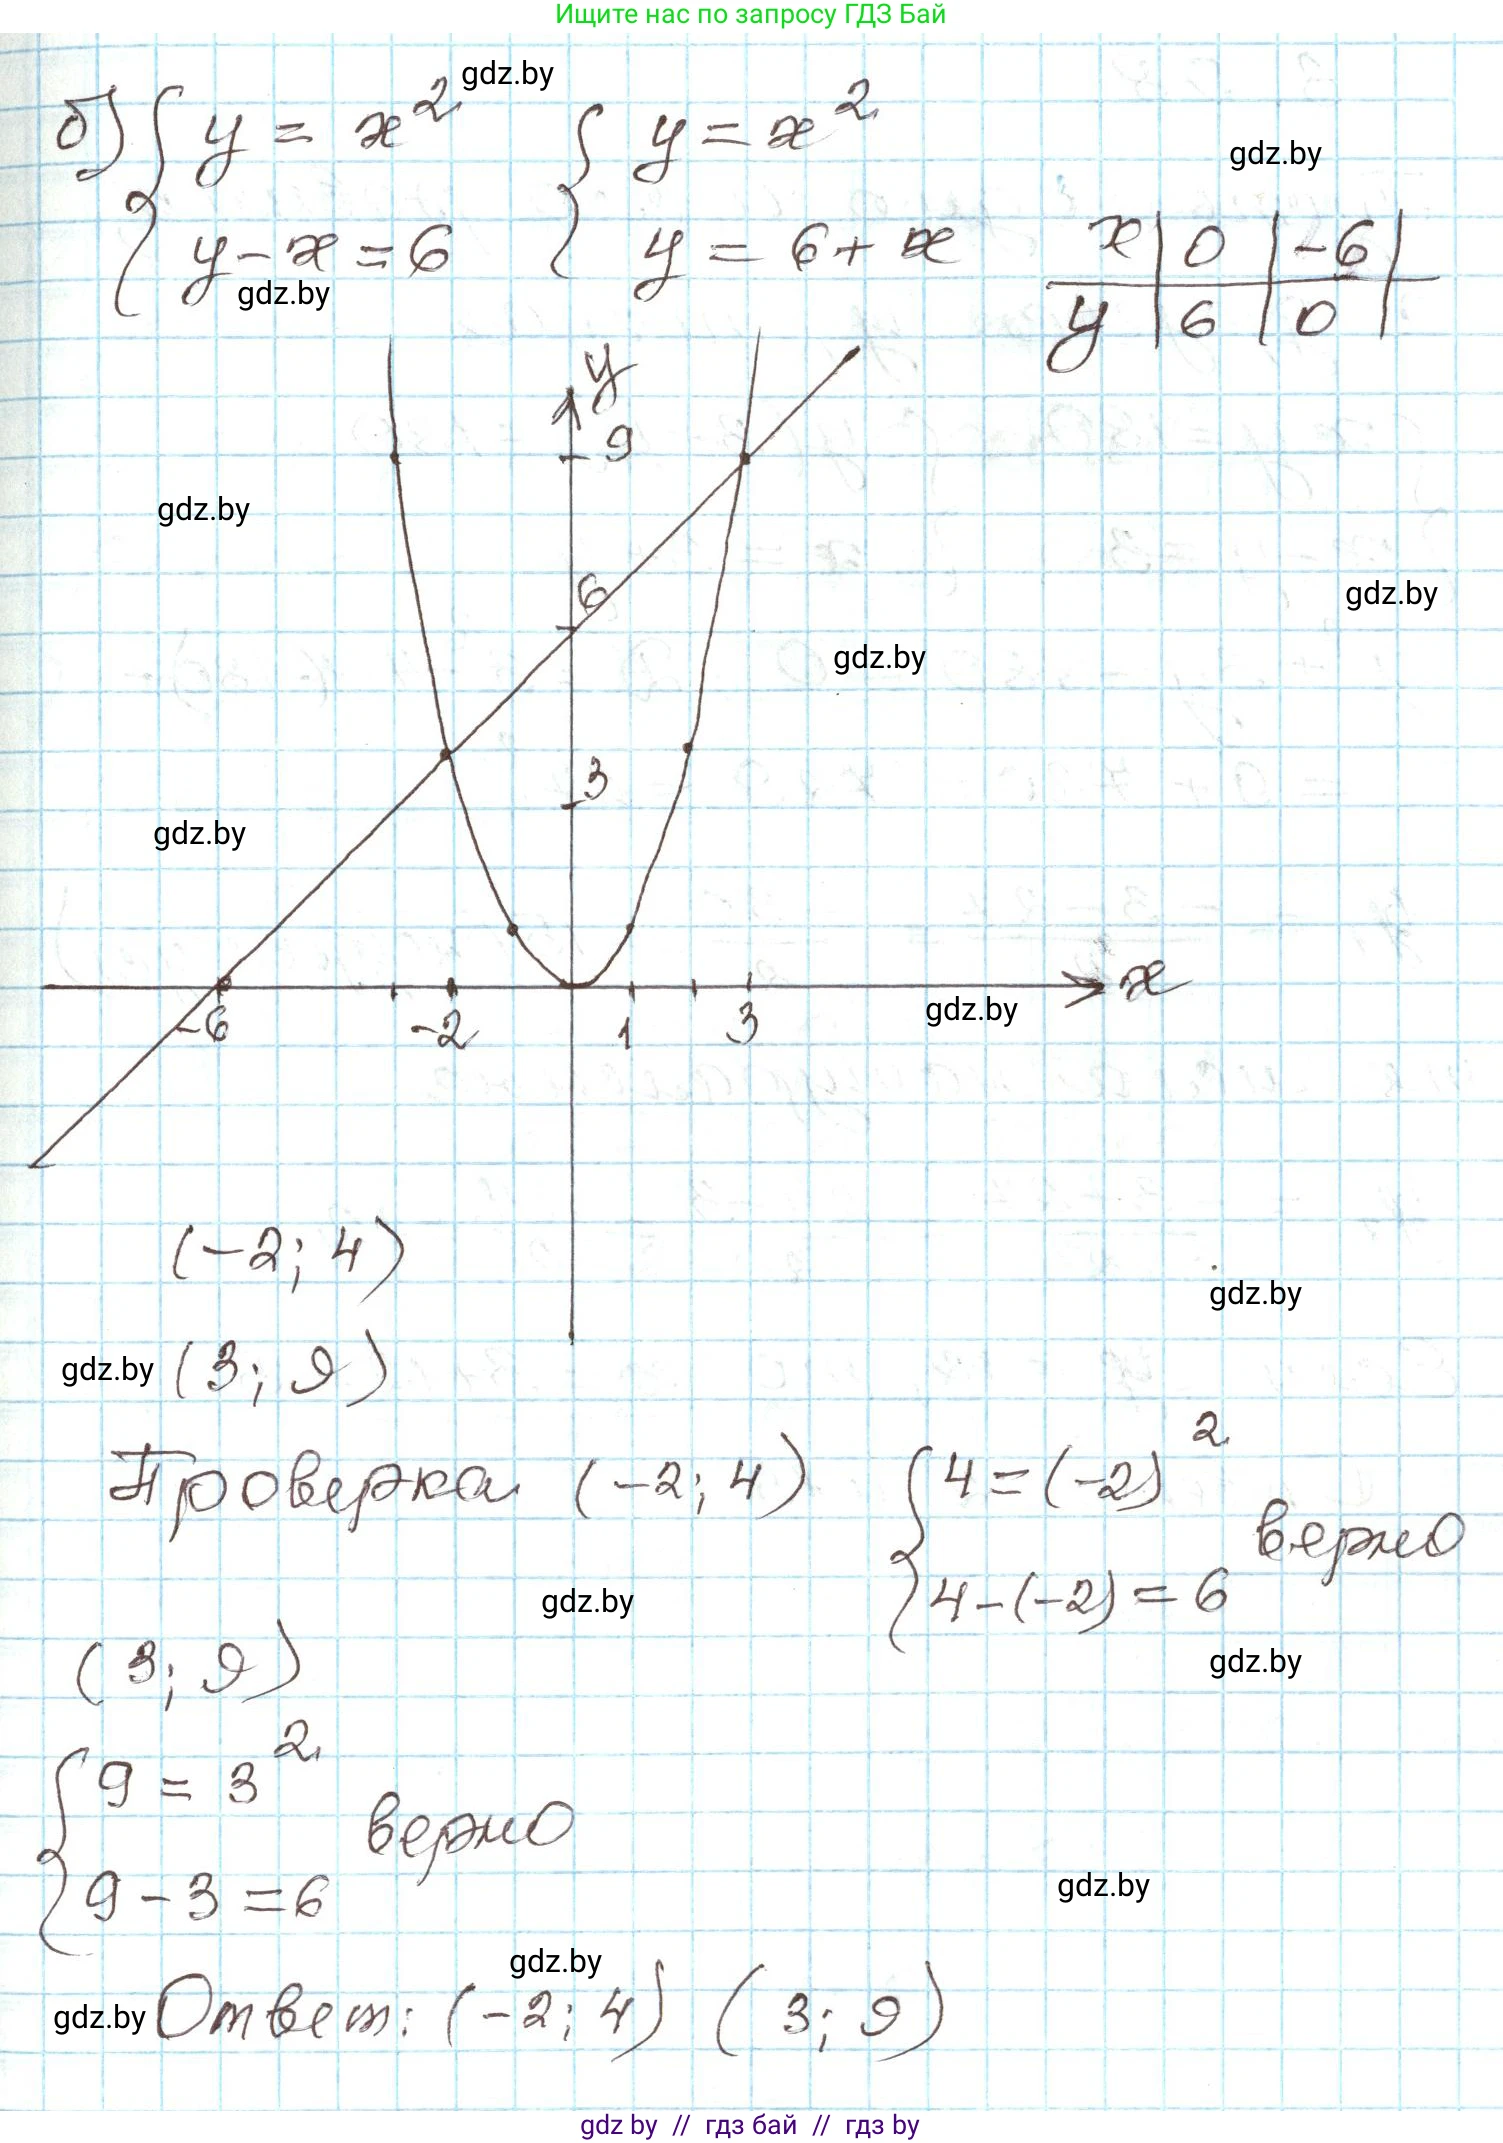 Ищите нас по запросу ГДЗ Бай
gdz.by
б) { y = x² { y = x²
gdz.by
{ y - x = 6 { y = 6 + x
x | 0 | -6 |
y | 6 | 0 |
gdz.by
y
9
gdz.by
6
gdz.by
gdz.by
3
gdz.by
x
-6 -2 1 3
gdz.by
(-2; 4)
gdz.by
gdz.by (3; 9)
Проверка (-2; 4) { 4 = (-2)²
верно
{ 4 - (-2) = 6
gdz.by
(3; 9)
gdz.by
{ 9 = 3²
верно
{ 9 - 3 = 6
gdz.by
gdz.by
gdz.by Ответ: (-2; 4) (3; 9)
gdz.by // гдз бай // гдз by